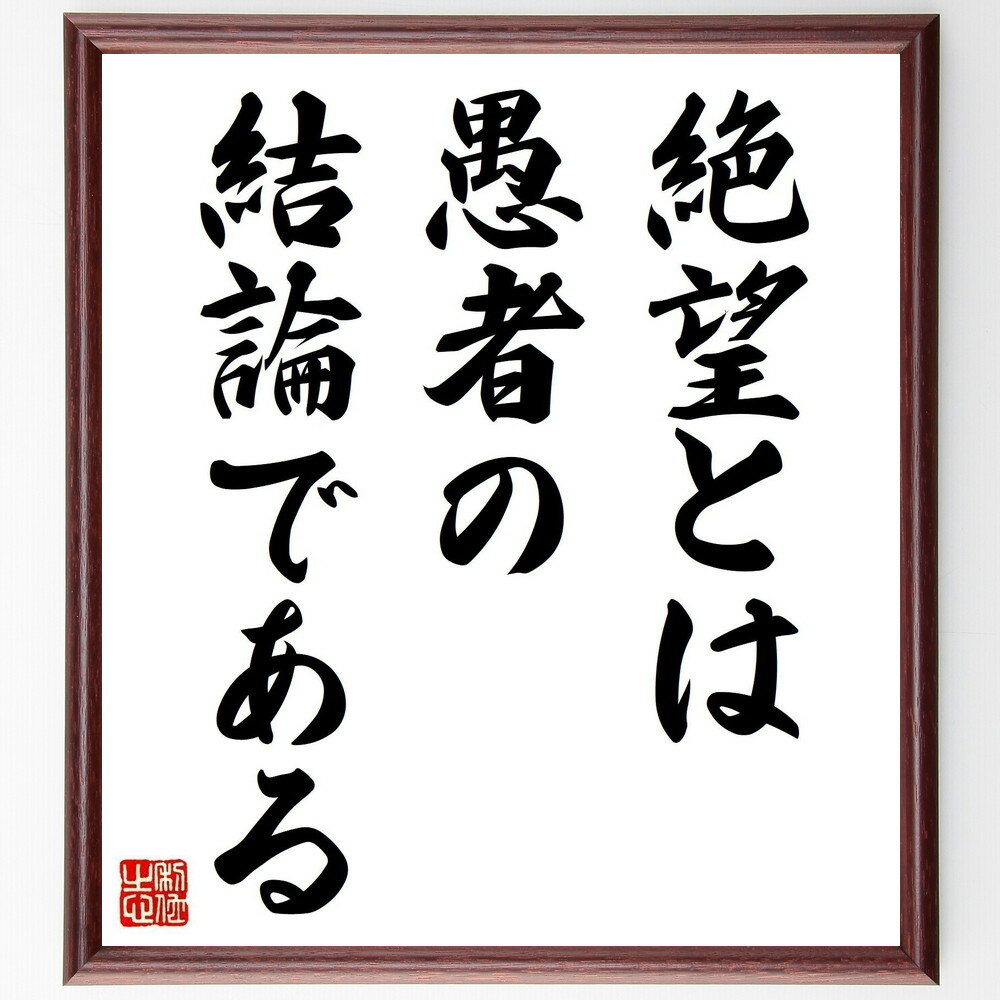 絶望とは
愚者の
結論である